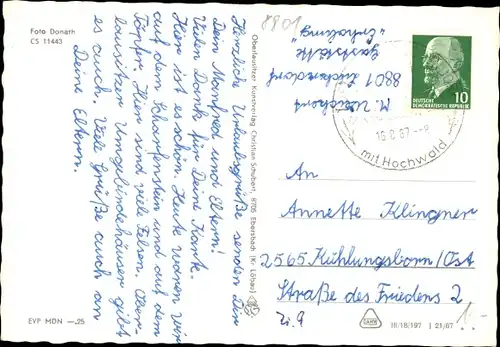 Foto Donath
CS 11443
Herzliche Urlaubsgrüße senden Dir
Dein Manfred und Eltern!
Vielen Dank für Deine Karte.
Hier ist es schön. Heute waren wir
auf dem Scharfenstein und auf dem
Töpfer. Hier sind viele Felsen. Ober-
lausitzer Umgebindehäuser gibt
es auch. Viele Grüße auch an
Deine Eltern.
EVP MDN —,25
Oberlausitzer Kunstverlag Christian Schubert, 8705 Ebersbach (Kr. Löbau)
8801
8801
Gaststätte
"Erholung"
DEUTSCHE
DEMOKRATISCHE REPUBLIK
10
mit Hochwald
An
Annette Klingner
2565 Kühlungsborn/Ost
Straße des Friedens 2
Zi. 9
III/18/197 J 21/67
1.-